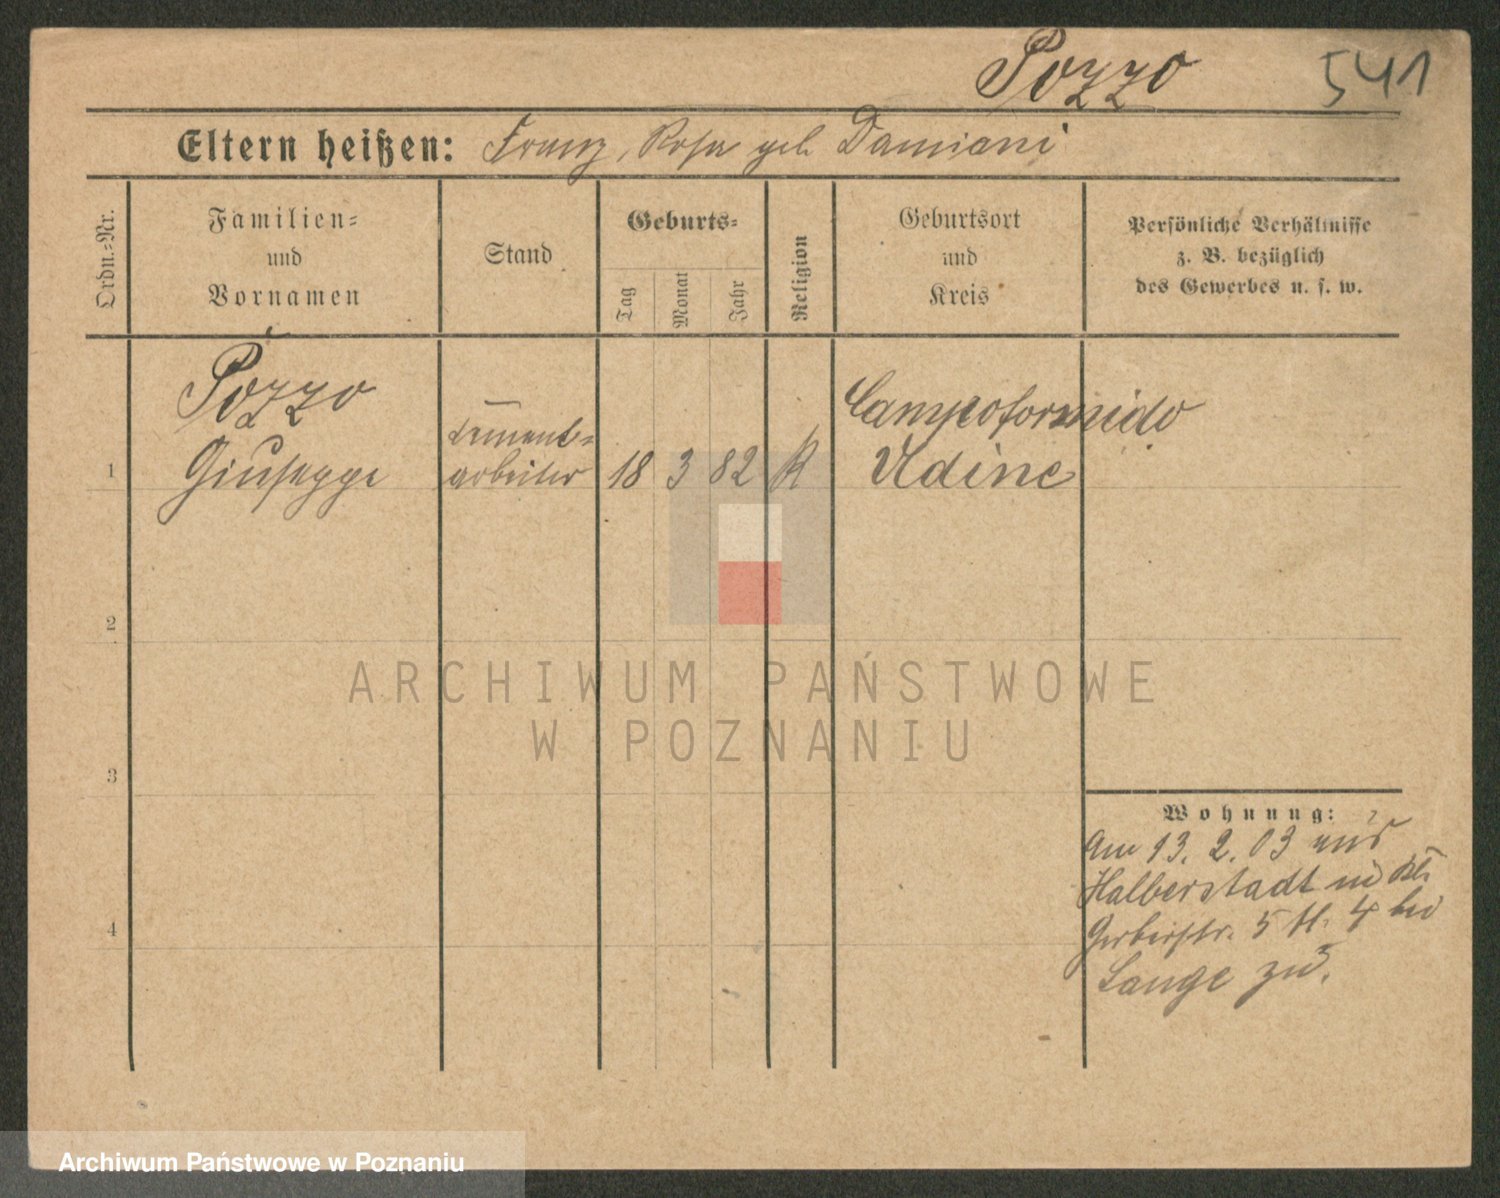 Pozzo 541
Eltern heißen: Franz, Rosa geb. Damiani
Ordn.-Nr.
Familien-
und
Vornamen
Stand
Geburts-
Tag
Monat
Jahr
Religion
Geburtsort
und
Kreis
Persönliche Verhältnisse
z. B. bezüglich
des Gewerbes u. s. w.
Pozzo
Giuseppe
Cement-
arbeiter
1
18 3 82 K
Campoformido
Udine
2
3
4
ARCHIWUM PAŃSTWOWE
W POZNANIU
Wohnung:
Am 13. 2. 03 aus
Halberstadt
Gerberstr. 5 II. 4 bei
Lange zu.
Archiwum Państwowe w Poznaniu